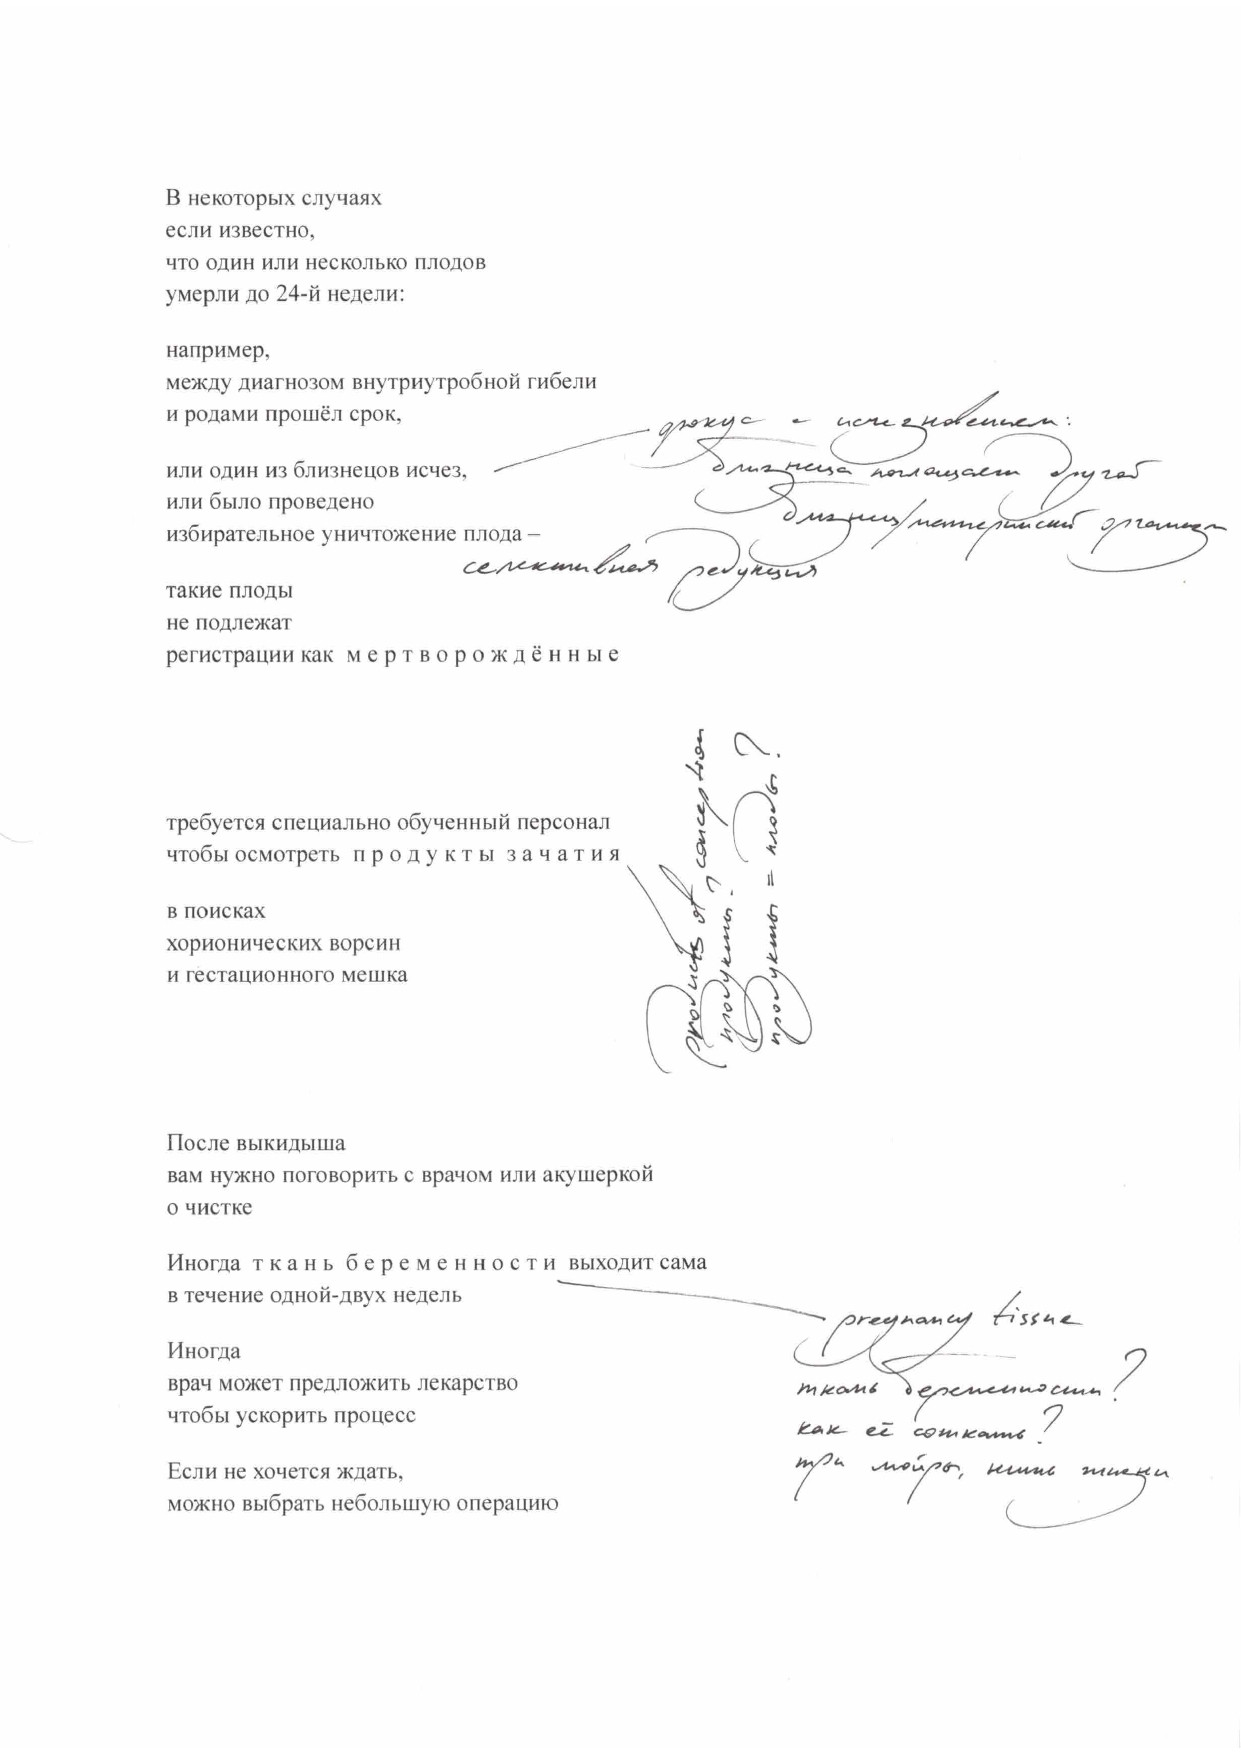 В некоторых случаях
если известно,
что один или несколько плодов
умерли до 24-й недели:
например,
между диагнозом внутриутробной гибели
и родами прошёл срок,
фокус с исчезновением:
или один из близнецов исчез,
близнеца поглощает другой
или было проведено
близнец/материнский организм
избирательное уничтожение плода –
селективная редукция
такие плоды
не подлежат
регистрации как м е р т в о р о ж д ё н н ы е
требуется специально обученный персонал
чтобы осмотреть п р о д у к т ы з а ч а т и я
products of conception
продукты?
продукты = плоды?
в поисках
хорионических ворсин
и гестационного мешка
После выкидыша
вам нужно поговорить с врачом или акушеркой
о чистке
Иногда т к а н ь б е р е м е н н о с т и выходит сама
в течение одной-двух недель
pregnancy tissue
Иногда
врач может предложить лекарство
ткань беременности?
чтобы ускорить процесс
как её соткать?
Если не хочется ждать,
три мойры, нить жизни
можно выбрать небольшую операцию